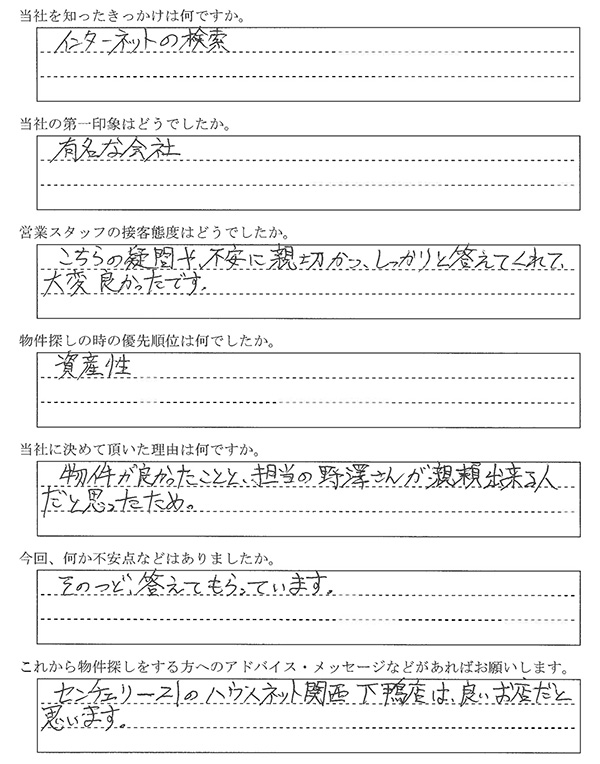 当社を知ったきっかけは何ですか。
インターネットの検索
当社の第一印象はどうでしたか。
有名な会社
営業スタッフの接客態度はどうでしたか。
こちらの疑問や、不安に親切かつ、しっかりと答えてくれて、
大変良かったです。
物件探しの時の優先順位は何でしたか。
資産性
当社に決めて頂いた理由は何ですか。
物件が良かったことと、担当の野澤さんが、親頼出来る人
だと思ったため。
今回、何か不安点などはありましたか。
そのつど、答えてもらっています。
これから物件探しをする方へのアドバイス・メッセージなどがあればお願いします。
センチュリー21のハウスネット関西下鴨店は、良いお店だと
思います。